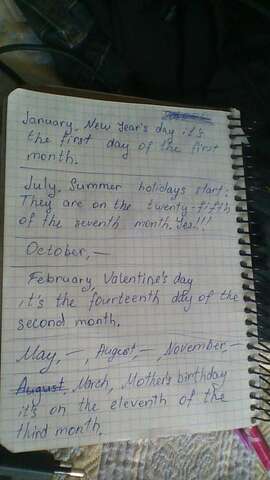 January, New Year's day it's
the first day of the first
month.
July, Summer holidays start:
They are on the twenty-fifth
of the seventh month. Yes!!!
October, —
February, Valentine's day
it's the fourteenth day of the
second month.
May, —, August, — November, —
August March, Mother's birthday
it's on the eleventh of the
third month.